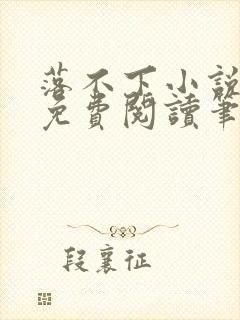 落不下小說
免費閱讀筆
段襄征